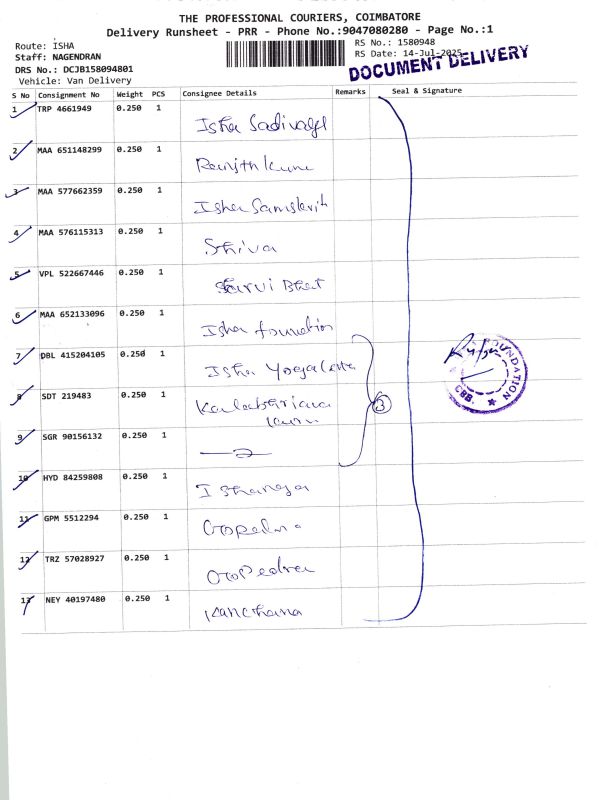 THE PROFESSIONAL COURIERS, COIMBATORE
Delivery Runsheet - PRR - Phone No.:9047080280 - Page No.:1
Route: ISHA
RS No.: 1580948
Staff: NAGENDRAN
RS Date: 14-Jul-2025
DRS No.: DCJB158094801
DOCUMENT DELIVERY
Vehicle: Van Delivery
S No Consignment No Weight PCS Consignee Details Remarks Seal & Signature
1 TRP 4661949 0.250 1
Isha
2 MAA 651148299 0.250 1
Ranjith Kum
3 MAA 577662359 0.250 1
Isha Samskrit
4 MAA 576115313 0.250 1
Shiva
5 VPL 522667446 0.250 1
Bhat
6 MAA 652133096 0.250 1
Isha foundation
7 DBL 415204105 0.250 1
Isha
8 SDT 219483 0.250 1
3
9 SGR 90156132 0.250 1
10 HYD 84259808 0.250 1
Ishanga
11 GPM 5512294 0.250 1
12 TRZ 57028927 0.250 1
13 NEY 40197480 0.250 1
Kanchana
FOUNDATION
CBB.